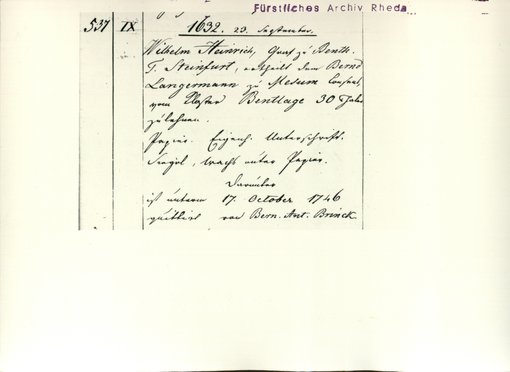 Fürstliches Archiv Rheda
537 IX 1632. 23. September.
Wilhelm Heinrich, Graf zu Benth.
T. Steinfurt, ertheilt dem Bernd
Langermann zu Mesum Consens,
vom Kloster Bentlage 30 Thaler
zu lehnen.
Papier. Eigenh. Unterschrift.
Siegel, Wachs unter Papier.
Darunter
ist unterm 17. October 1746
quittirt von Bern. Ant. Brinck.